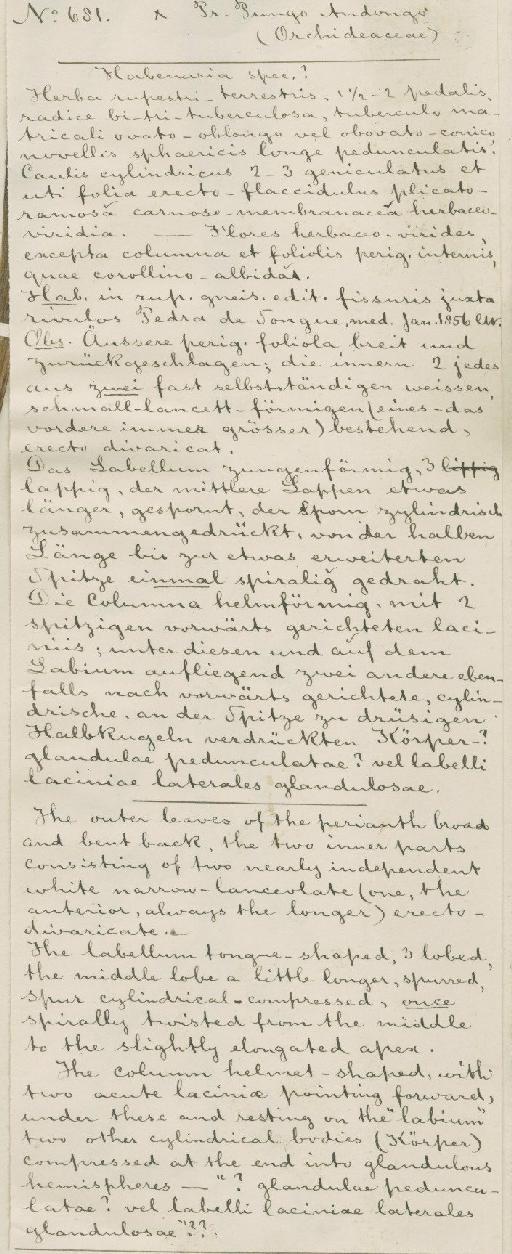 No. 681. × Pr. Pungo Andongo
(Orchideaceae)
Habenaria spec.?
Herba rupestri-terrestris, 1 1/2 - 2 pedalis,
radice bi-tri-tuberculosa, tuberculo ma-
tricali ovato-oblongo vel obovato-conico
novellis sphaericis longe pedunculatis.
Caulis cylindricus 2-3 geniculatus et
uti folia erecto-flaccidulus plicato-
ramosa carnoso-membranacea herbaceo-
viridia. — Flores herbaceo-virides,
excepta columna et foliolis perig. internis,
quae corollino-albida.
Hab. in rup. gneis. edit. fissuris juxta
rivulos Pedra de Songue, med. Jan. 1856 lett.
Obs. Äussere perig. foliola breit und
zurückgeschlagen; die innern 2 jedes
aus zwei fast selbstständigen weissen,
schmall-lancett-förmigen (eines-das
vordere immer grösser) bestehend,
erecto divaricat.
Das Labellum zungenförmig, 3 lippig
lappig, der mittlere Lappen etwas
länger, gespornt, der Sporn zylindrisch
zusammengedrückt, von der halben
Länge bis zur etwas erweiterten
Spitze einmal spiralig gedraht.
Die Columna helmförmig, mit 2
spitzigen vorwärts gerichteten laci-
niis; unter diesen und auf dem
Labium aufliegend zwei andere eben-
falls nach vorwärts gerichtete, cylin-
drische, an der Spitze zu drüsigen
Halbkugeln verdrückten Körper-?
glandulae pedunculatae? vel labelli
laciniae laterales glandulosae.
The outer leaves of the perianth broad
and bent back, the two inner parts
consisting of two nearly independent
white narrow-lanceolate (one, the
anterior, always the longer) erecto-
divaricate.
The labellum tongue-shaped, 3 lobed,
the middle lobe a little longer, spurred,
spur cylindrical-compressed, once
spirally twisted from the middle
to the slightly elongated apex.
The column helmet-shaped, with
two acute laciniæ pointing forward,
under these and resting on the "labium"
two other cylindrical bodies (Körper)
compressed at the end into glandulous
hemispheres — "? glandulae peduncu-
latae? vel labelli laciniae laterales
glandulosae"??.